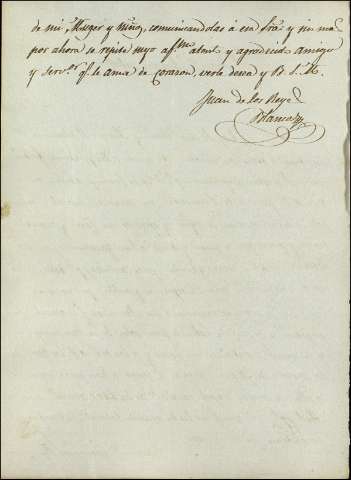 de mi Muger y niño, comunicandolas à esa Sra. y sin mas
por ahora se repite suyo afmo. atent. y agradecido amigo
y servor. q. le ama de corazon, verle desea y B. S. M.
Juan de los Reyes
Blanco